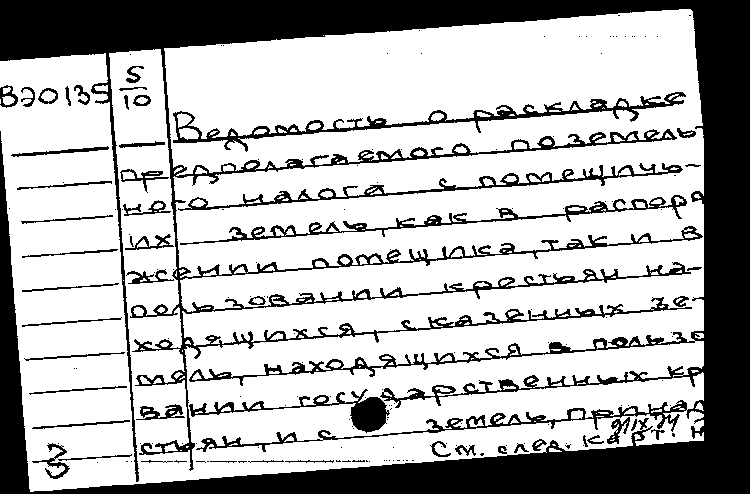 В20135 5/10
Ведомость о раскладке
предполагаемого поземель-
ного налога с помещичь-
их земель, как в распоря
жении помещика, так и в
пользовании крестьян на-
ходящихся, с казенных зе-
мель, находящихся в пользо
вании государственных кре
стьян, и с земель, принад
См. след. карт.